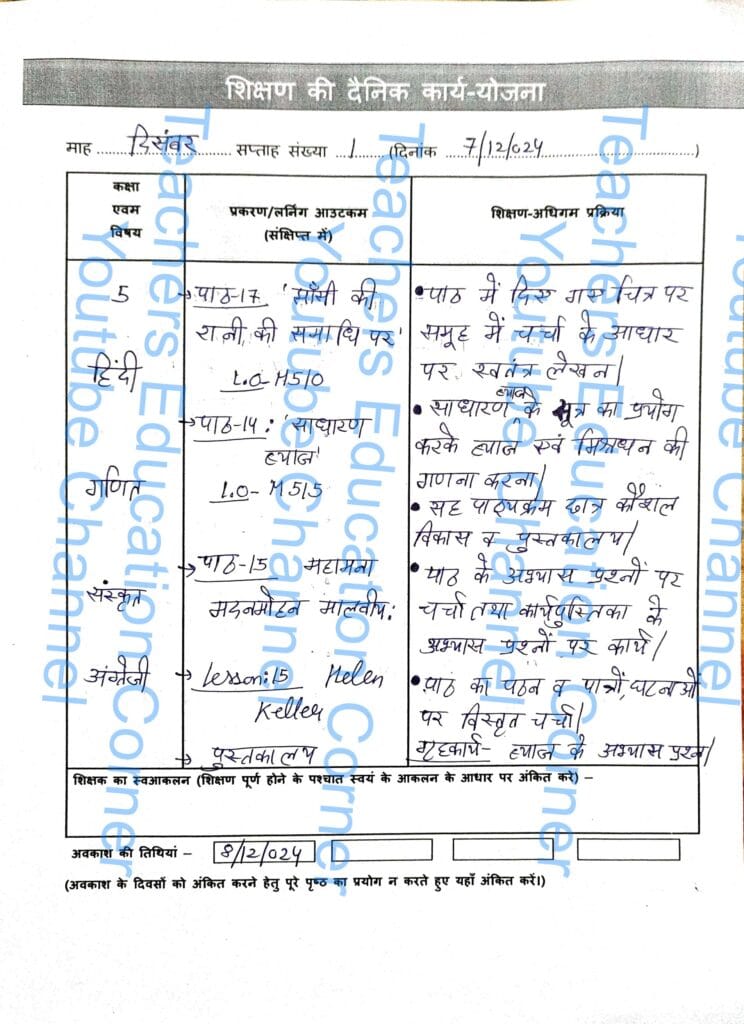 शिक्षण की दैनिक कार्य-योजना
माह दिसंबर सप्ताह संख्या 1 (दिनांक 7/12/024)
कक्षा
एवम
विषय
प्रकरण/लर्निंग आउटकम
(संक्षिप्त में)
शिक्षण-अधिगम प्रक्रिया
5
हिंदी
→ पाठ-17 'झाँसी की
रानी की समाधि पर'
L.O-H510
• पाठ में दिए गए चित्र पर
समूह में चर्चा के आधार
पर स्वतंत्र लेखन।
गणित
→ पाठ-14: 'साधारण
ब्याज'
L.O- M515
• साधारण ब्याज के सूत्र का प्रयोग
करके ब्याज एवं मिश्रधन की
गणना करना।
• सह पाठ्यक्रम छात्र कौशल
विकास व पुस्तकालय।
संस्कृत
→ पाठ-15 महामना
मदनमोहन मालवीय:
• पाठ के अभ्यास प्रश्नों पर
चर्चा तथा कार्यपुस्तिका के
अभ्यास प्रश्नों पर कार्य।
अंग्रेजी
→ Lesson:15 Helen
Keller
→ पुस्तकालय
• पाठ का पठन व पात्रों, घटनाओं
पर विस्तृत चर्चा।
गृहकार्य- ब्याज के अभ्यास प्रश्न।
शिक्षक का स्वआकलन (शिक्षण पूर्ण होने के पश्चात स्वयं के आकलन के आधार पर अंकित करें) –
अवकाश की तिथियां – 8/12/024
(अवकाश के दिवसों को अंकित करने हेतु पूरे पृष्ठ का प्रयोग न करते हुए यहाँ अंकित करें।)
Teachers Education Corner
Youtube Channel
Teaches Education Corner
Youtube Channel
Teachers Education Corner
Youtube Channel